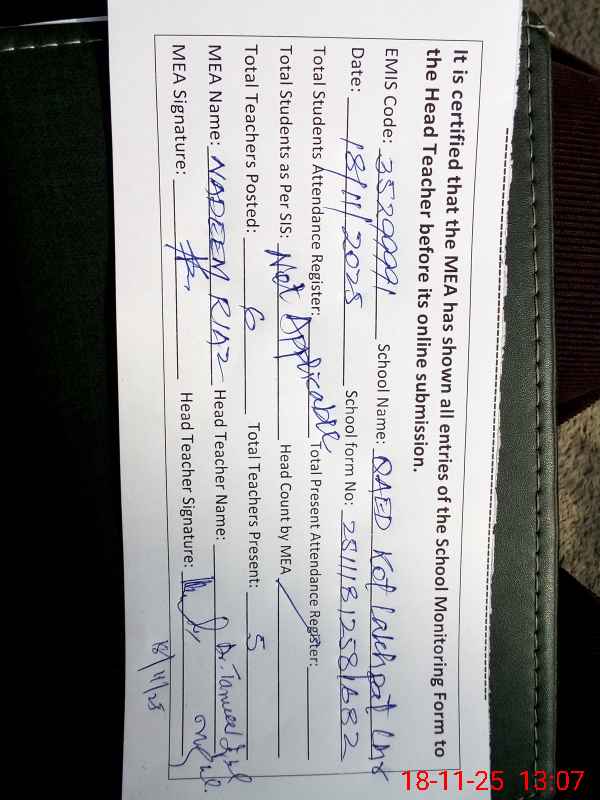 It is certified that the MEA has shown all entries of the School Monitoring Form to
the Head Teacher before its online submission.
EMIS Code: 35299991 School Name: QAED Kot Lakhpat Lhr
Date: 18/11/2025 School form No:
Total Students Attendance Register: Total Present Attendance Register:
Total Students as Per SIS: Not Applicable Head Count by MEA
Total Teachers Posted: 6 Total Teachers Present: 5
MEA Name: NADEEM RIAZ Head Teacher Name: Dr.
MEA Signature: Head Teacher Signature:
18/11/25
18-11-25 13:07